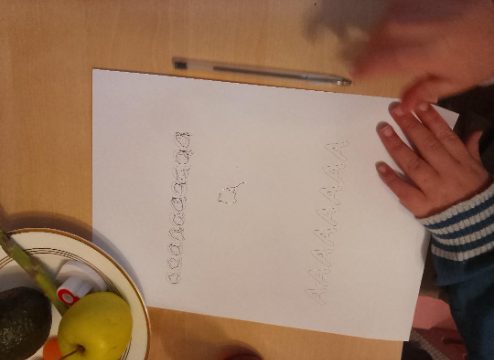 aaaaaaaaaa
a
AAAAAAAA